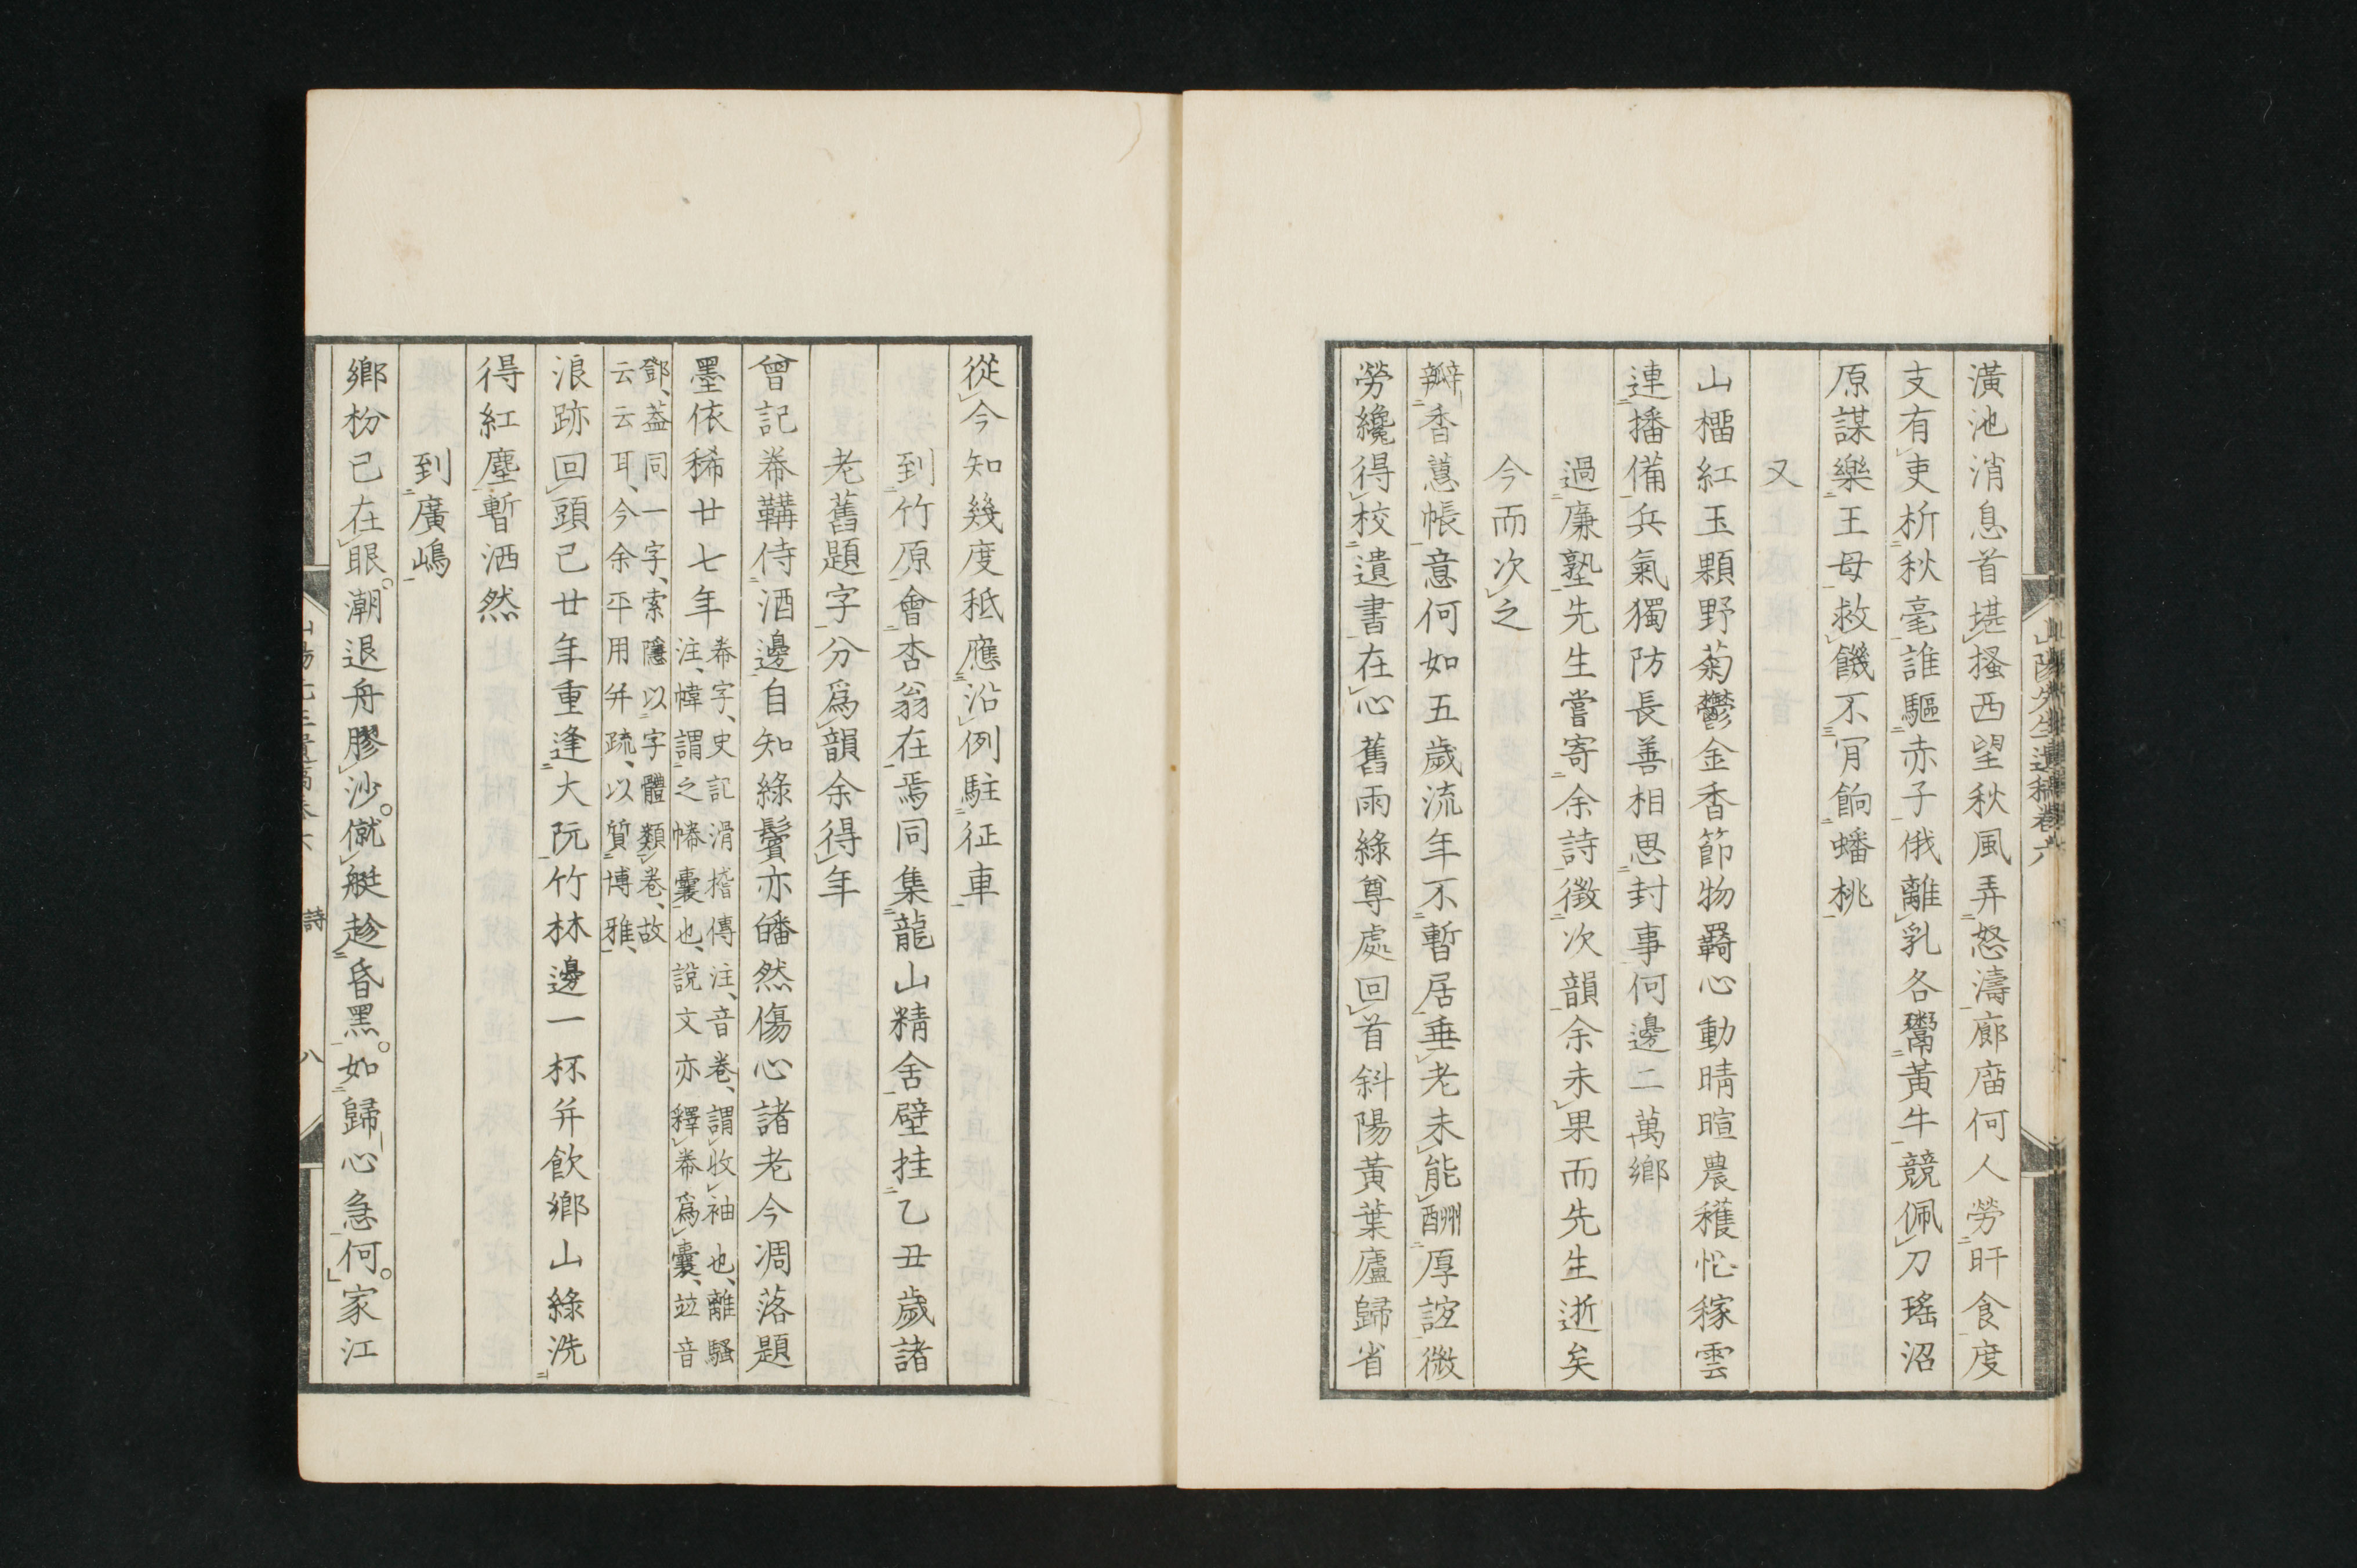 山陽先生遺稿卷六
潢池消息首堪搔西望秋風弄怒濤廊廟何人勞旰食度
支有吏析秋毫誰驅赤子俄離乳各鬻黃牛競佩刀瑤沼
原謀樂王母救饑不肎餉蟠桃
又
山櫺紅玉顆野菊鬱金香節物羇心動晴暄農穫忙稼雲
連播備兵氣獨防長善相思封事何邊二萬鄉
過廉塾先生嘗寄余詩徵次韻余未果而先生逝矣
今而次之
瓣香蕙帳意何如五歲流年不暫居垂老未能酬厚誼微
勞纔得校遺書在心舊雨綠尊處回首斜陽黃葉廬歸省
從今知幾度秪應沿例駐征車
到竹原會杏翁在焉同集龍山精舍壁挂乙丑歲諸
老舊題字分爲韻余得年
曾記帣鞲侍酒邊自知綠鬢亦皤然傷心諸老今凋落題
墨依稀廿七年
帣字、史記滑稽傳注、音卷、謂收袖也、離騷
注、幃謂之幐囊也、說文亦釋帣爲囊、竝音
鄧、葢同一字、索隱以字體類卷、故
云云耳、今余平用幷疏、以質博雅、
浪跡回頭已廿年重逢大阮竹林邊一杯幷飮鄉山綠洗
得紅塵暫洒然
到廣嶋
鄉枌已在眼。潮退舟膠沙。僦艇趁昏黑。如歸心急何。家江
詩
八